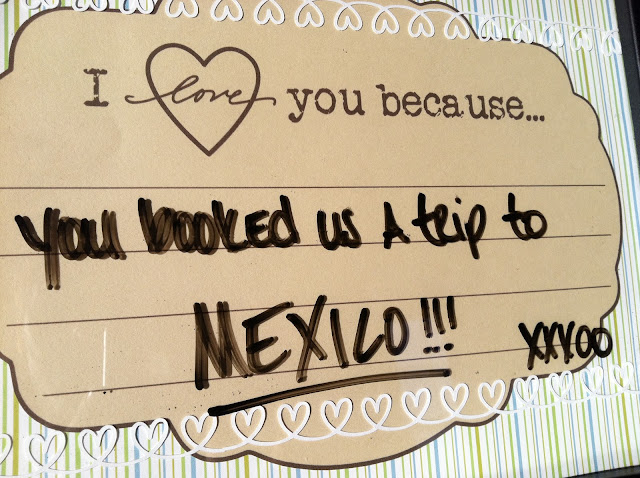 I love you because...
you booked us a trip to
MEXICO!!!
XXXOO